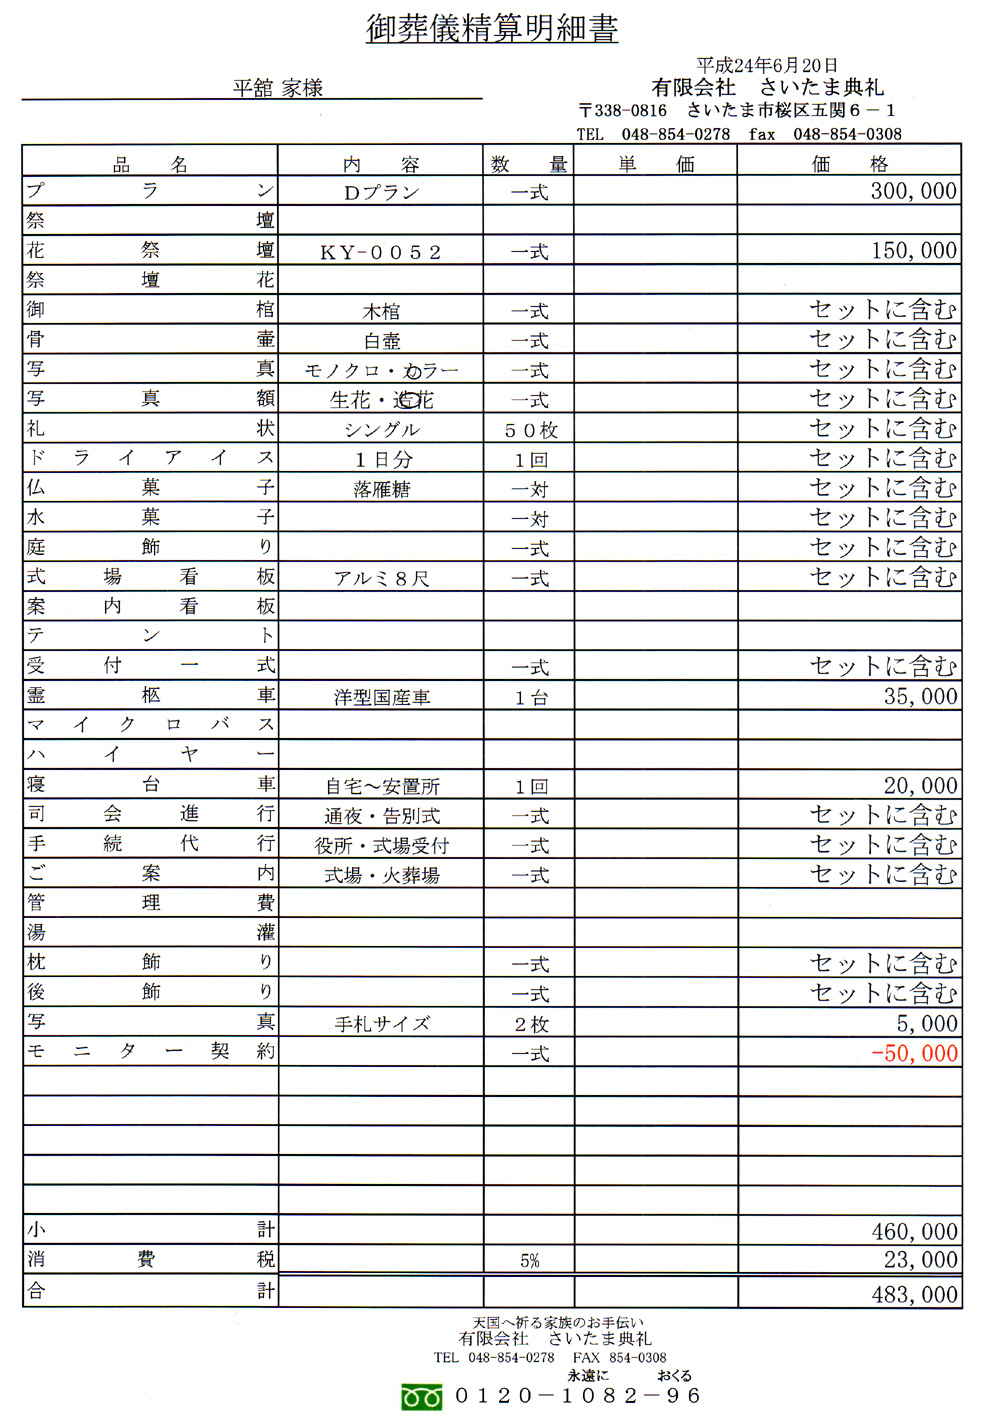 御葬儀精算明細書
平成24年6月20日
平舘 家様
有限会社 さいたま典礼
〒338-0816 さいたま市桜区五関６－１
TEL 048-854-0278 fax 048-854-0308
品名 内容 数量 単価 価格
プラン Ｄプラン 一式 300,000
祭壇
花祭壇 ＫＹ-００５２ 一式 150,000
祭壇花
御棺 木棺 一式 セットに含む
骨壷 白壺 一式 セットに含む
写真 モノクロ・カラー 一式 セットに含む
写真額 生花・造花 一式 セットに含む
礼状 シングル ５０枚 セットに含む
ドライアイス １日分 １回 セットに含む
仏菓子 落雁糖 一対 セットに含む
水菓子 一対 セットに含む
庭飾り 一式 セットに含む
式場看板 アルミ８尺 一式 セットに含む
案内看板
テント
受付一式 一式 セットに含む
霊柩車 洋型国産車 １台 35,000
マイクロバス
ハイヤー
寝台車 自宅～安置所 １回 20,000
司会進行 通夜・告別式 一式 セットに含む
手続代行 役所・式場受付 一式 セットに含む
ご案内 式場・火葬場 一式 セットに含む
管理費
湯灌
枕飾り 一式 セットに含む
後飾り 一式 セットに含む
写真 手札サイズ ２枚 5,000
モニター契約 一式 -50,000
小計 460,000
消費税 5% 23,000
合計 483,000
天国へ祈る家族のお手伝い
有限会社 さいたま典礼
TEL 048-854-0278 FAX 854-0308
永遠に おくる
０１２０－１０８２－９６